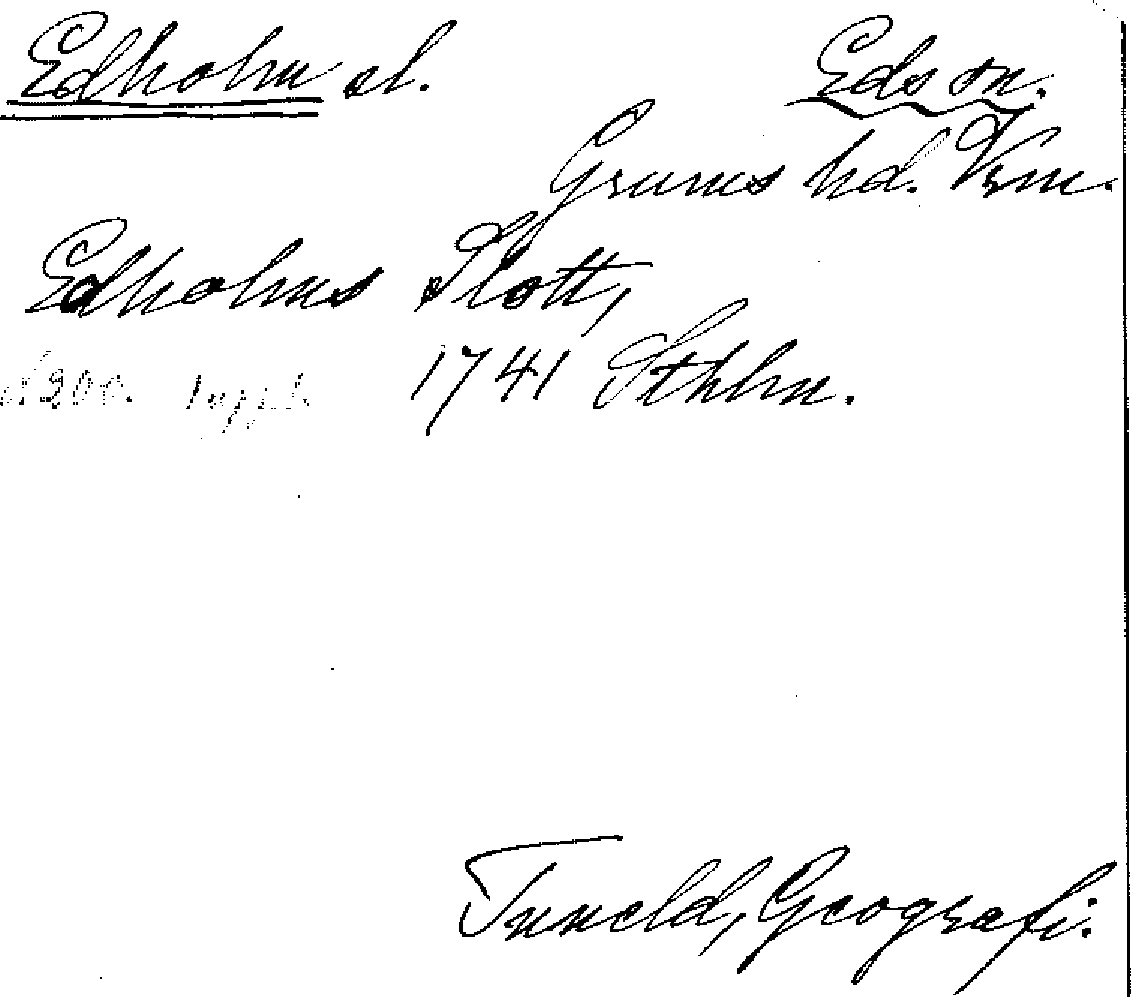 Edholm sl.
Eds sn.
Grums hd. Vrm.
Edholms Slott,
1741 Sthlm.
Tuneld, Geografi.